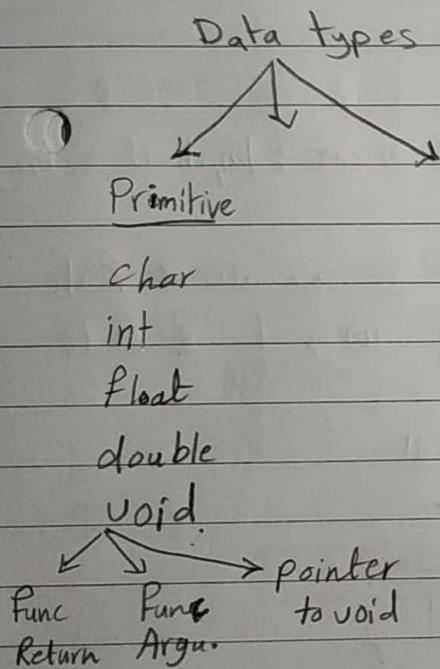 Data types
Primitive
char
int
float
double
void.
Func Return
Func Argu.
pointer to void